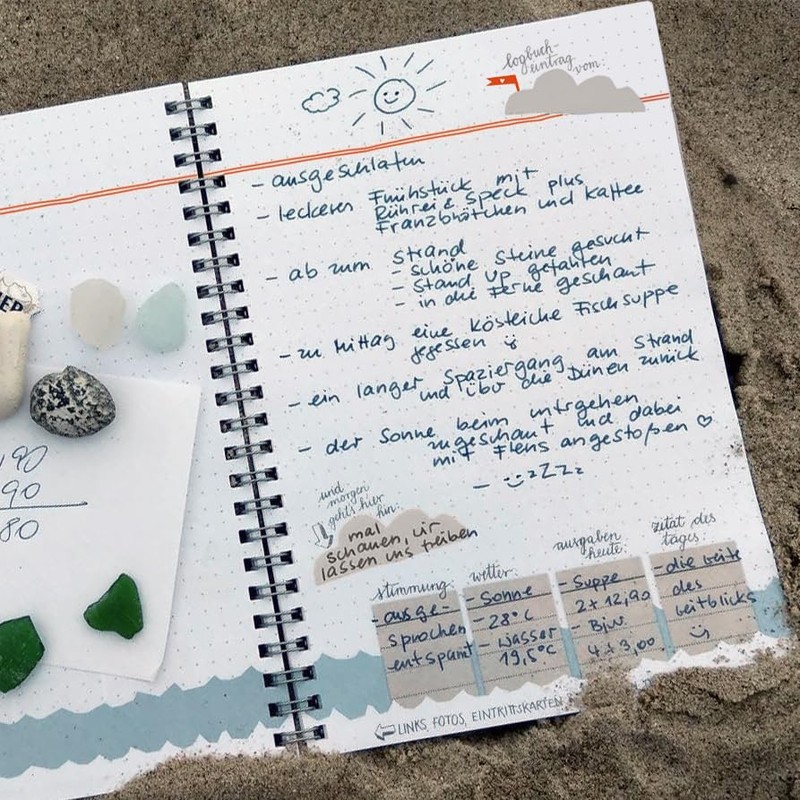 logbuch-
eintrag
vom:
- ausgeschlafen
- leckeres Frühstück mit
Rührei & Speck plus
Franzbrötchen und Kaffee
- ab zum Strand
- schöne Steine gesucht
- Stand Up gefahren
- in die Ferne geschaut
- zu Mittag eine köstliche Fischsuppe
gegessen
- ein langer Spaziergang am Strand
und über die Dünen zurück
- der Sonne beim untergehen
zugeschaut und dabei
mit Flens angestoßen ♡
- zZZz
und
morgen
geht's hier
hin:
mal
schauen, wir
lassen uns treiben
stimmung:
- ausge-
sprochen
entspannt
wetter:
- Sonne
- 28°C
- Wasser
19,5°C
ausgaben
heute:
- Suppe
2 x 12,90
- Bier
4 x 3,00
zitat des
tages:
- die Weite
des
Weitblicks
LINKS, FOTOS, EINTRITTSKARTEN
,90
90
80